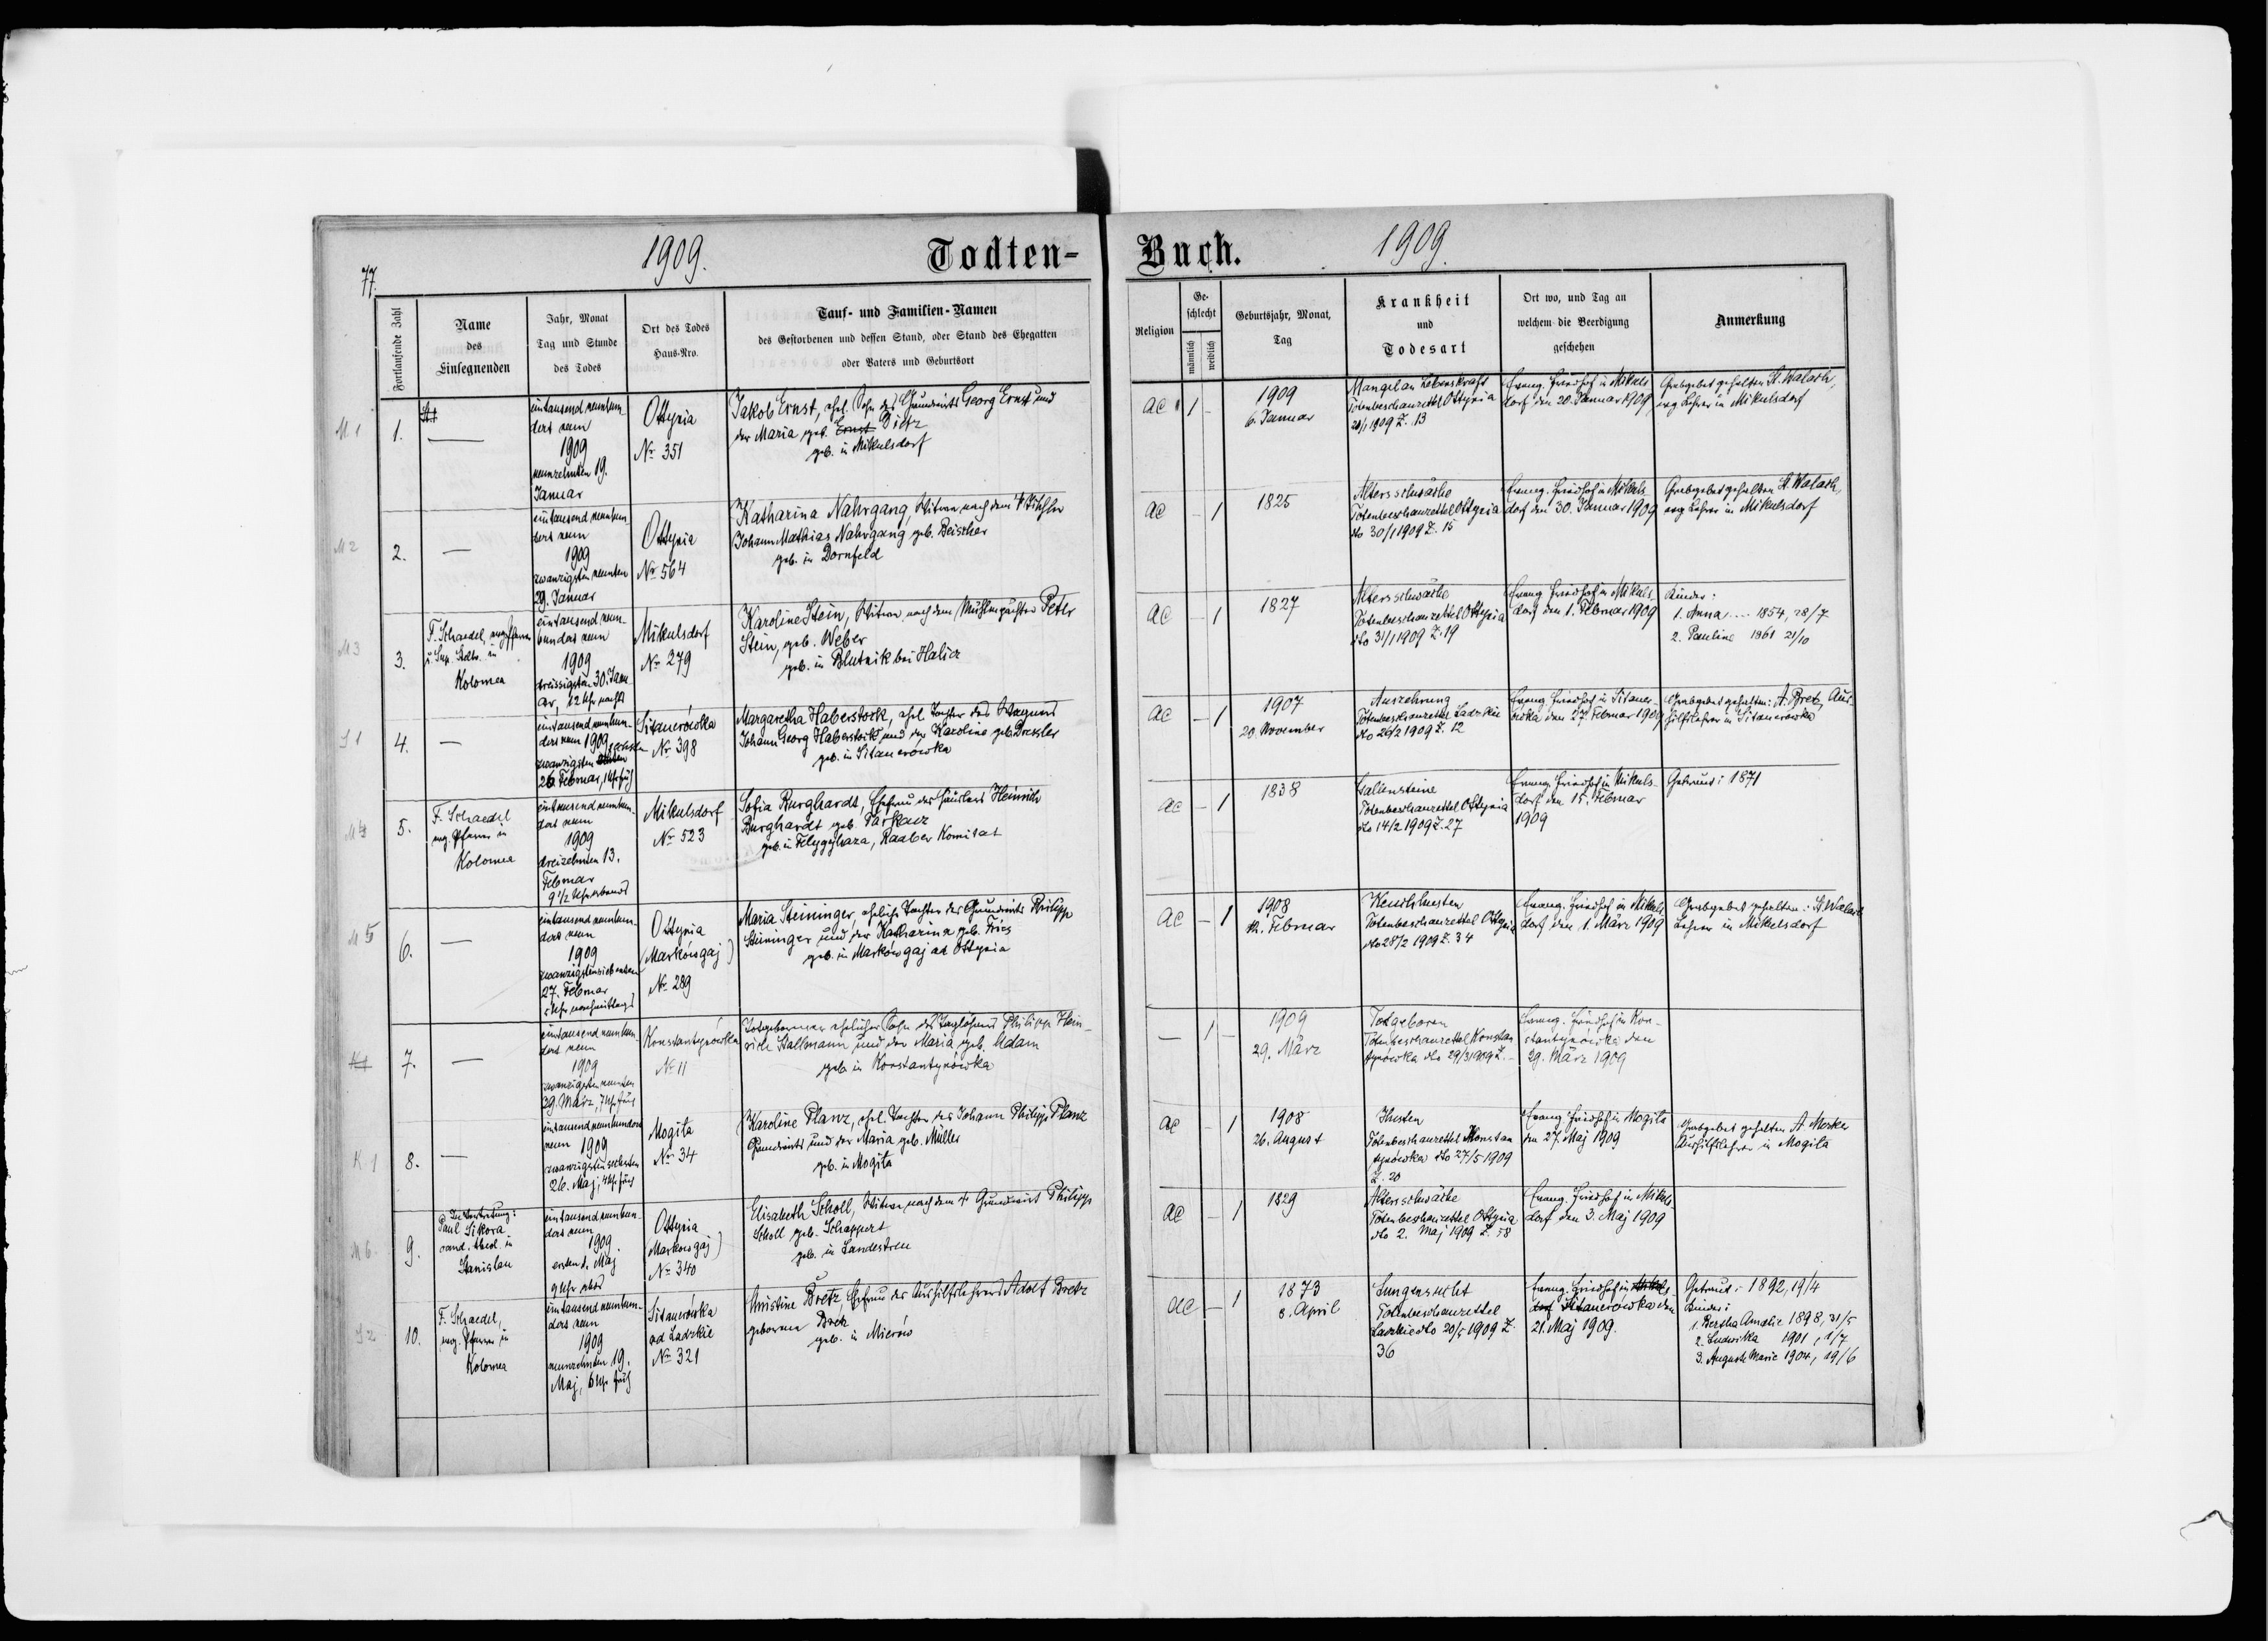 77.
1909.
Todten-
Fortlaufende Zahl
Name
des
Einsegnenden
Jahr, Monat
Tag und Stunde
des Todes
Ort des Todes
Haus-Nro.
Tauf- und Familien-Namen
des Gestorbenen und dessen Stand, oder Stand des Ehegatten
oder Vaters und Geburtsort
M 1
1.
—
eintausend neunhun-
dert neun
1909
neunzehnten 19.
Januar
Ottynia
No 351
Jakob Ernst, ehel. Sohn des Grundwirts Georg Ernst und
der Maria geb. Ernst Dietz
geb. in Mikulsdorf
M 2
2.
—
eintausend neunhun
dert neun
1909
zwanzigsten neunten
29. Januar
Ottynia
No 564
Katharina Nahrgang, Witwe nach dem
Johann Mathias Nahrgang geb. Beischer
geb. in Dornfeld
M 3
3.
F. Schaedel, evg. Pfarrer
u. Sup. Stellv. in
Kolomea
eintausend neun-
hundert neun
1909
dreissigsten 30. Janu
ar, 12 Uhr nachts
Mikulsdorf
No 279
Karoline Stein, Witwe nach dem Mühlenpächter Peter
Stein, geb. Weber
geb. in Blutnik bei Halicz
S 1
4.
—
eintausend neunhun-
dert neun 1909, sechsten
zwanzigsten
26. Februar, 1 Uhr früh
Sitauerówka
No 398
Margaretha Haberstock, ehel. Tochter des Wagners
Johann Georg Haberstock und der Karoline geb. Drexler
geb. in Sitauerówka
M 4
5.
F. Schaedel
evg. Pfarrer in
Kolomea
eintausend neunhun-
dert neun
1909
dreizehnten 13.
Februar
9 1/2 Uhr abends
Mikulsdorf
No 523
Sofia Burghardt, Ehefrau des Häuslers Heinrich
Burghardt geb. Farkacz
geb. in Felygyhaza, Raaber Komitat
M 5
6.
—
eintausend neunhun-
dert neun
1909
zwanzigsten siebenten
27. Februar
Uhr nachmittags
Ottynia
(Markówgaj)
No 289
Maria Steininger, eheliche Tochter des Grundwirts Philipp
Steininger und der Katharina geb. Fries
geb. in Markówgaj ad Ottynia
K 1
7.
—
eintausend neunhun-
dert neun
1909
zwanzigsten neunten
29. März, 7 Uhr früh
Konstantynówka
No 11
Totgeborener ehelicher Sohn des Taglöhners Philipp Hein-
rich Stallmann und der Maria geb. Adam
geb. in Konstantynówka
K. 1
8.
—
eintausend neunhundert
neun 1909
zwanzigsten sechsten
26. Maj, 4 Uhr früh
Mogiła
No 34
Karoline Planz, ehel. Tochter des Johann Philipp Planz
Grundwirts und der Maria geb. Müller
geb. in Mogiła
M 6.
9.
In Vertretung:
Paul Sikora
cand. theol. in
Stanislau
eintausend neunhun-
dert neun
1909.
ersten 1. Maj
9 Uhr abds
Ottynia
(Markowgaj)
No 340
Elisabeth Scholl, Witwe nach dem + Grundwirt Philipp
Scholl geb. Schappert
geb. in Landestreu
S 2
10.
F. Schaedel,
evg. Pfarrer in
Kolomea
eintausend neunhun-
dert neun
1909
neunzehnten 19.
Maj, 6 Uhr früh
Sitauerówka
ad Ladzkie
No 321
Christine Bretz, Ehefrau des Aushilfslehrers Adolf Bretz
geborene Bretz
geb. in Mierów
Buch.
1909.
Religion
Ge-
schlecht
männlich
weiblich
Geburtsjahr, Monat,
Tag
Krankheit
und
Todesart
Ort wo, und Tag an
welchem die Beerdigung
geschehen
Anmerkung
AC
1
-
1909
6. Januar
Mangel an Lebenskraft
Totenbeschauzettel Ottynia
20/1 1909 Z. 13
Evang. Friedhof in Mikuls
dorf den 20. Januar 1909
Grabgebet gehalten St. Walach,
evg Lehrer in Mikulsdorf
AC
-
1
1825
Altersschwäche
Totenbeschauzettel Ottynia
dto 30/1 1909 Z. 15
Evang. Friedhof in Mikuls
dorf den 30. Januar 1909
Grabgebet gehalten St. Walach,
evg Lehrer in Mikulsdorf
AC
-
1
1827
Altersschwäche
Totenbeschauzettel Ottynia
dto 31/1 1909 Z. 19
Evang. Friedhof in Mikuls-
dorf den 1. Februar 1909
Kinder:
1. Anna .... 1854, 28/7
2. Pauline 1861 21/10
AC
-
1
1907
20. November
Auszehrung
Totenbeschauzettel Ladzkie
dto 26/2 1909 Z. 12
Evang. Friedhof in Sitauer-
ówka den 27. Februar 1909
Grabgebet gehalten: A. Bretz, Aus-
hilfslehrer in Sitauerówka
AC
-
1
1838
Gallensteine
Totenbeschauzettel Ottynia
dto 14/2 1909 Z. 27
Evang. Friedhof in Mikuls-
dorf den 15. Februar
1909
Getraut: 1871
AC
-
1
1908
12. Februar
Keuchhusten
Totenbeschauzettel Ottynia
dto 28/2 1909 Z. 34
Evang. Friedhof in Mikuls
dorf den 1. März 1909
Grabgebet gehalten: St. Walach
Lehrer in Mikulsdorf
—
1
-
1909
29. März
Totgeboren
Totenbeschauzettel Konstan
tynówka dto 29/3 1909 Z. -
Evang. Friedhof in Kon-
stantynówka den
29. März 1909
AC
-
1
1908
26. August
Husten
Totenbeschauzettel Konstan
tynówka dto 27/5 1909
Z. 20
Evang. Friedhof in Mogiła
den 27. Maj 1909
Grabgebet gehalten A
Aushilfslehrer in Mogiła
AC
-
1
1829
Altersschwäche
Totenbeschauzettel Ottynia
dto 2. Maj 1909 Z. 58
Evang. Friedhof in Mikuls
dorf den 3. Maj 1909
AC
-
1
1873
8. April
Lungensucht
Totenbeschauzettel
Ladzkie dto 20/5 1909 Z.
36
Evang. Friedhof in Mikuls-
dorf Sitauerówka den
21. Maj 1909.
Getraut: 1892, 19/4
Kinder:
1. Bertha Amalie 1898, 31/5
2. Ludwika 1901, 1/7
3. Auguste Marie 1904, 19/6